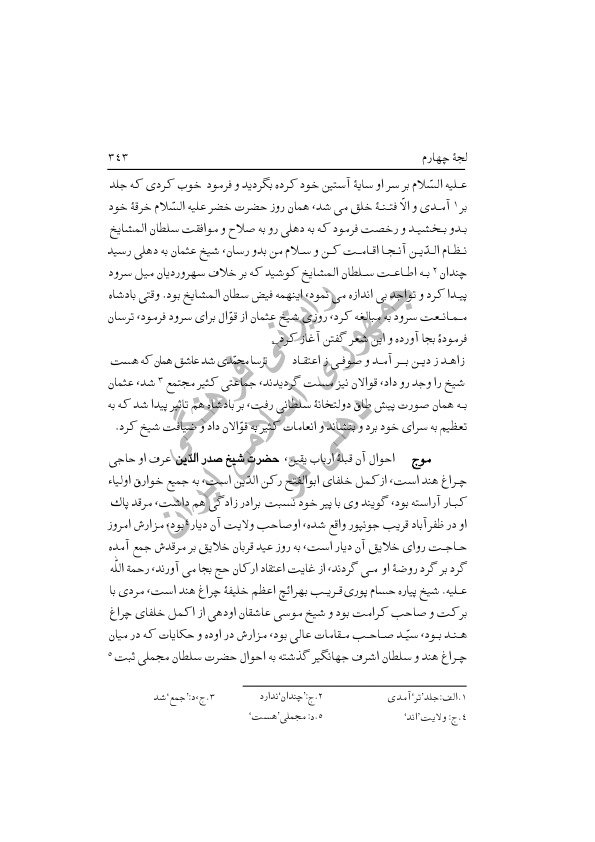 لجهٔ چهارم ۳۴۳
علیه السّلام بر سر او سایهٔ آستین خود کرده بگردید و فرمود خوب کردی که جلد
بر۱ آمدی و الّا فتنهٔ خلق می شد، همان روز حضرت خضر علیه السّلام خرقهٔ خود
بدو بخشید و رخصت فرمود که به دهلی رو به صلاح و موافقت سلطان المشایخ
نظام الدّین آنجا اقامت کن و سلام من بدو رسان، شیخ عثمان به دهلی رسید
چندان۲ به اطاعت سلطان المشایخ کوشید که بر خلاف سهروردیان میل سرود
پیدا کرد و تواجد بی اندازه می نمود، اینهمه فیض سطان المشایخ بود. وقتی بادشاه
ممانعت سرود به مبالغه کرد، روزی شیخ عثمان از قوّال برای سرود فرمود، ترسان
فرمودهٔ بجا آورده و این شعر گفتن آغاز کرد.
زاهد ز دین بر آمد و صوفی ز اعتقاد ترسا محمّدی شد عاشق همان که هست
شیخ را وجد رو داد، قوالان نیز مست گردیدند، جماعتی کثیر مجتمع۳ شد، عثمان
به همان صورت پیش طاق دولتخانهٔ سلطانی رفت، بر بادشاه هم تاثیر پیدا شد که به
تعظیم به سرای خود برد و بنشاند و انعامات کثیر به قوّالان داد و ضیافت شیخ کرد.
موج احوال آن قبلهٔ ارباب یقین، حضرت شیخ صدر الدّین عرف او حاجی
چراغ هند است، از کمل خلفای ابوالفتح رکن الدّین است، به جمیع خوارق اولیاء
کبار آراسته بود، گویند وی با پیر خود نسبت برادر زادگی هم داشت، مرقد پاك
او در ظفر آباد قریب جونپور واقع شده، او صاحب ولایت آن دیار۴ بود، مزارش امروز
حاجت روای خلایق آن دیار است، به روز عید قربان خلایق بر مرقدش جمع آمده
گرد بر گرد روضهٔ او می گردند، از غایت اعتقاد ارکان حج بجا می آورند، رحمة الله
علیه. شیخ پیاره حسام پوری قریب بهرائچ اعظم خلیفهٔ چراغ هند است، مردی با
برکت و صاحب کرامت بود و شیخ موسی عاشقان اودهی از اکمل خلفای چراغ
هند بود، سیّد صاحب مقامات عالی بود، مزارش در اوده و حکایات که در میان
چراغ هند و سلطان اشرف جهانگیر گذشته به احوال حضرت سلطان مجملی ثبت۵
۱.الف: جلد 'تر' آمدی ۲.ج: 'چندان' ندارد ۳.ج،د: 'جمع' شد
۴.ج: ولایت 'اند' ۵.د: مجملی 'هست'